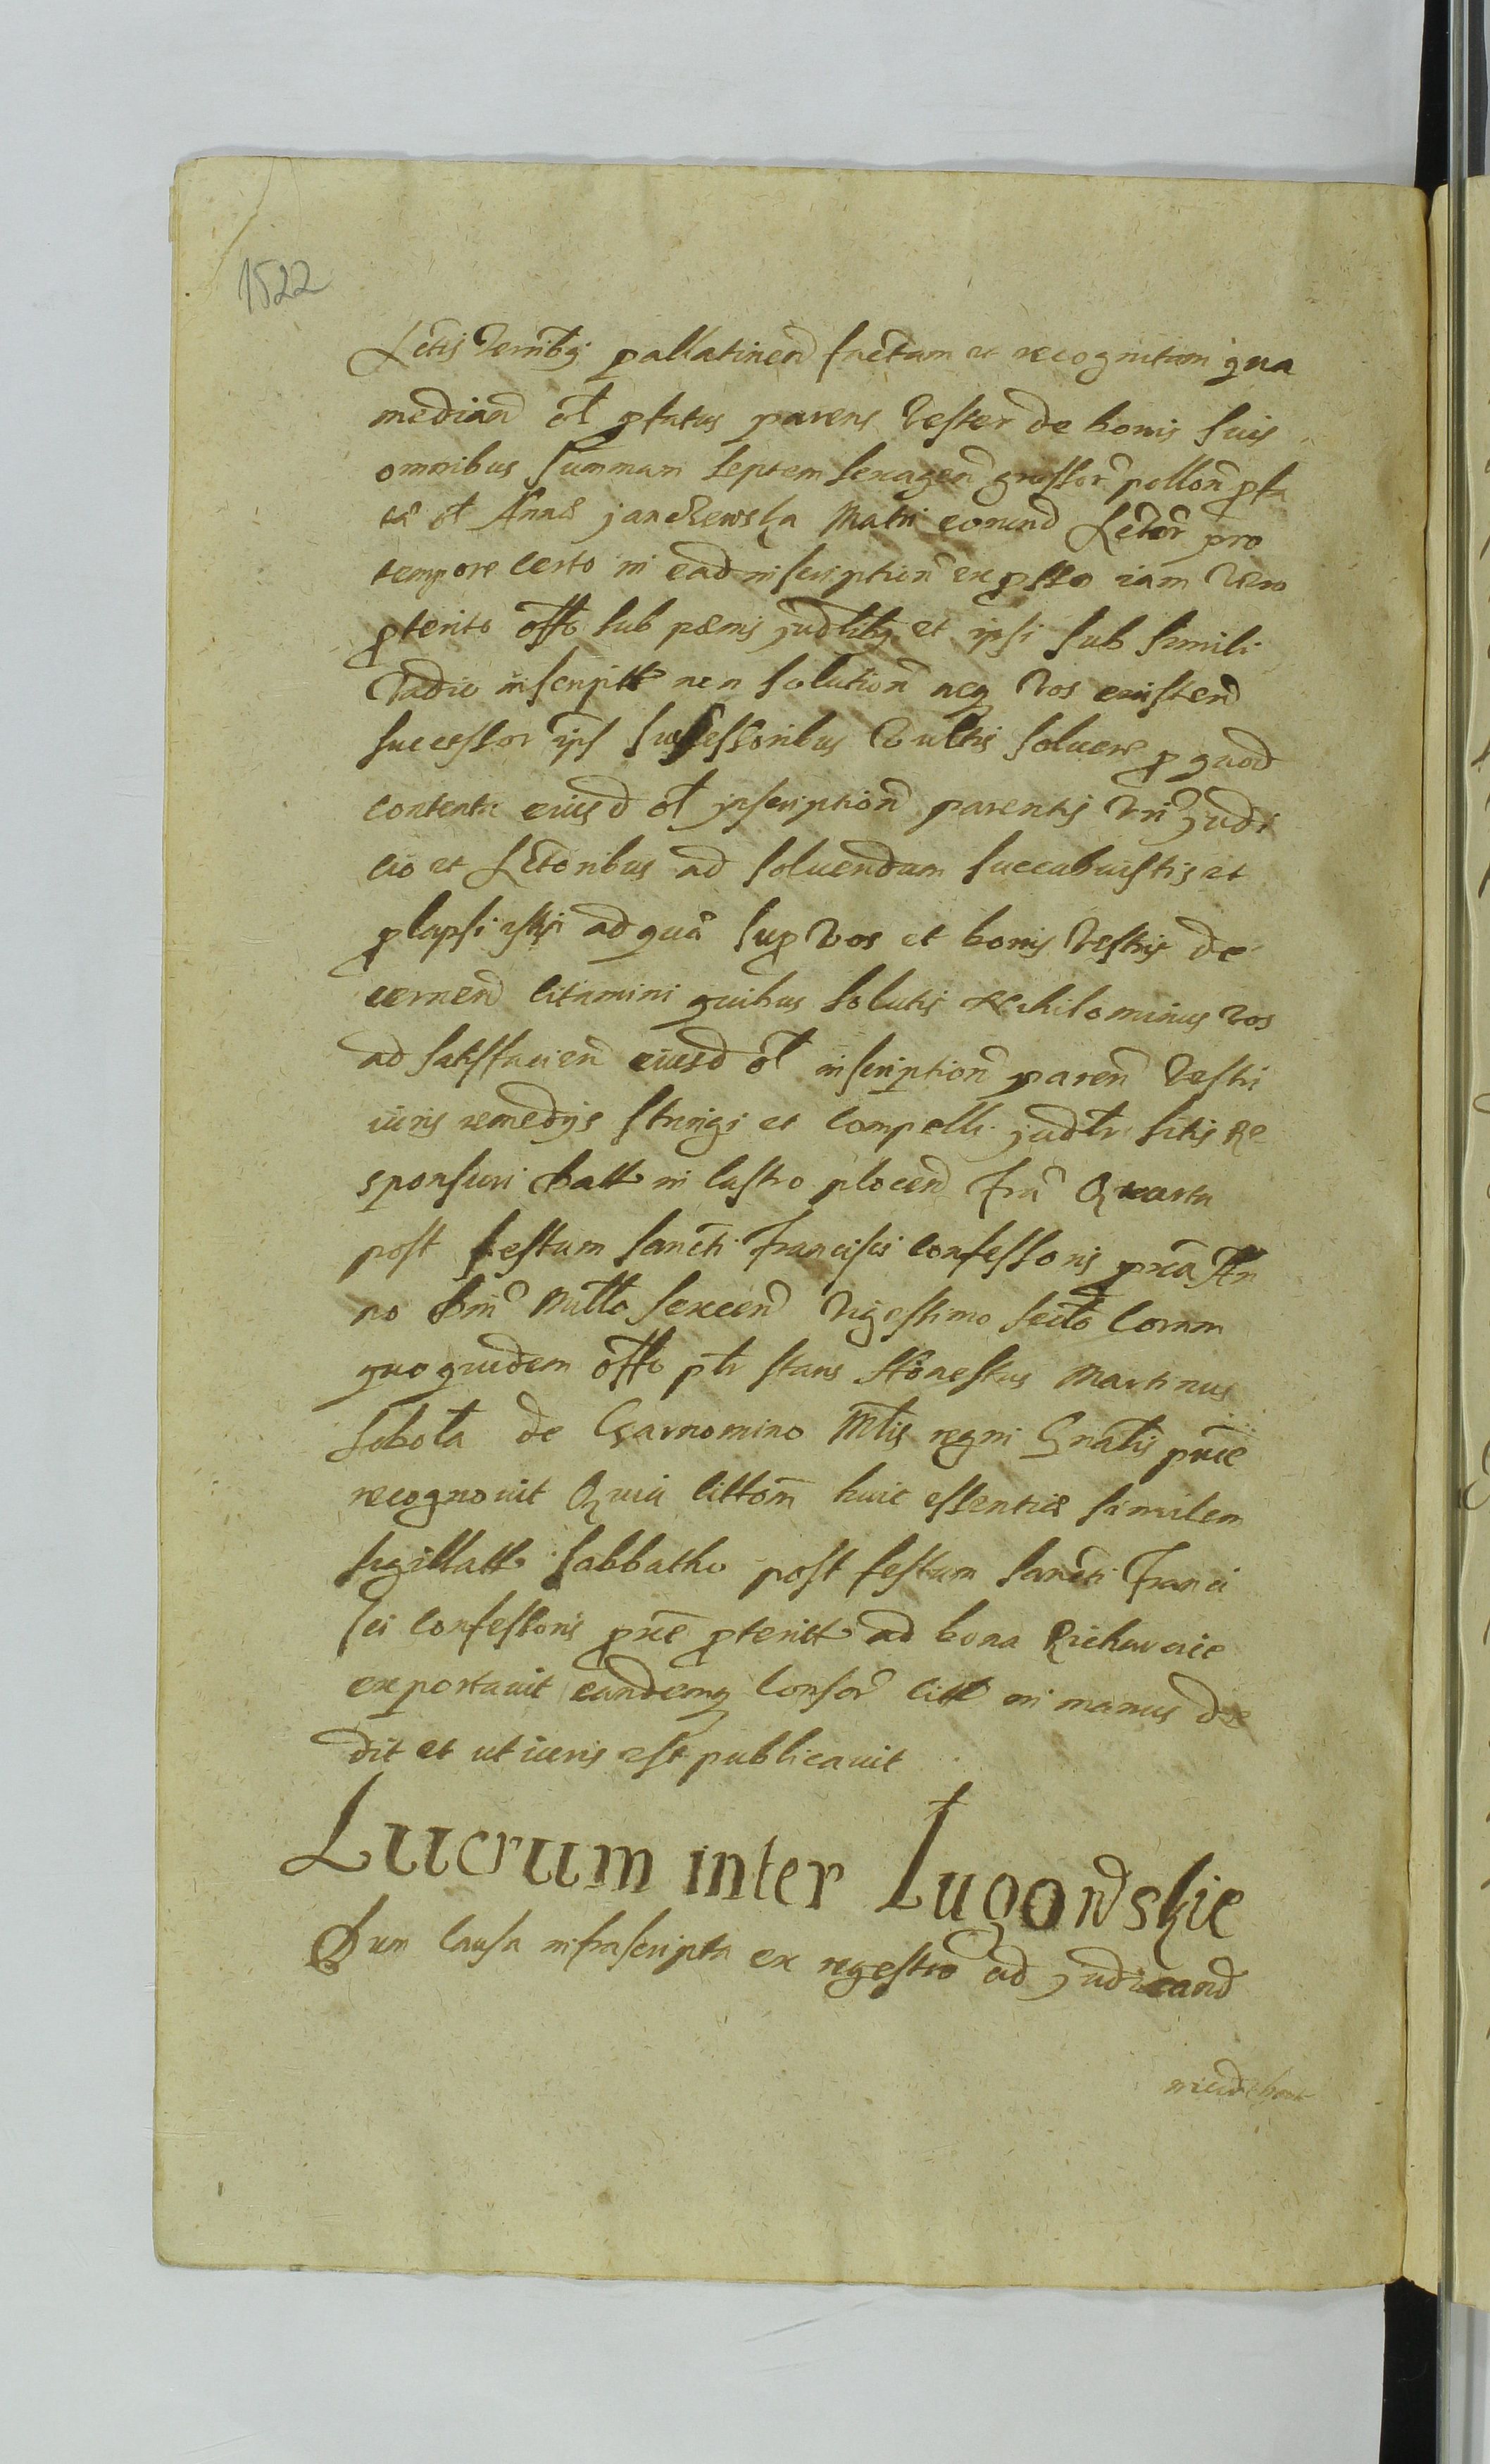 1522
Lctis Terribq pallatinen factam et recognitam qua
median ol pfatus parens Vester de bonis suis
omnibus Summam septem sexagen grossor pollon pfa
tae ol Annae Janczewska Matri eorund Lctor pro
tempore certo in ead inscription expsso iam vero
pterito offo sub paenis judlibq et ipsi sub simili
vadio inscriptt non solution neq Vos existen
successor ips successoribus Vultis soluere p quod
contenta eiusd ol jnscription parentis Vri Judi
cio et Lctoribus ad soluendam succubuistis et
plapsi estis ad qua sup Vos et bonis Vestris de
cernen citamini quibus solutis Nihilominus Vos
ad satisfacien eiusd ol inscription paren Vestri
iuris remedys stringi et compelli judlr sitis Re
sponsuri Datt in Castro plocen Fria Quarta
post festum sancti Francisci Confessoris pxia An
no Dni Millo sexcen Vigestimo secdo Coram
quo quidem offo plr stans Honestus Martinus
Sobota de Czarnomino Mtlis regni Gnalis pnte
recognouit Quia litteram huic essentiae similem
sigillatt Sabbatho post festum Sancti Franci
sci Confessoris pxie pteritt ad bona Kiehawcie
exportauit eandemq Consor citt in manus de
dit et ut iuris est publicauit
Lucrum inter Lugowskie
Dum Causa infrascripta ex regestro ad judicand